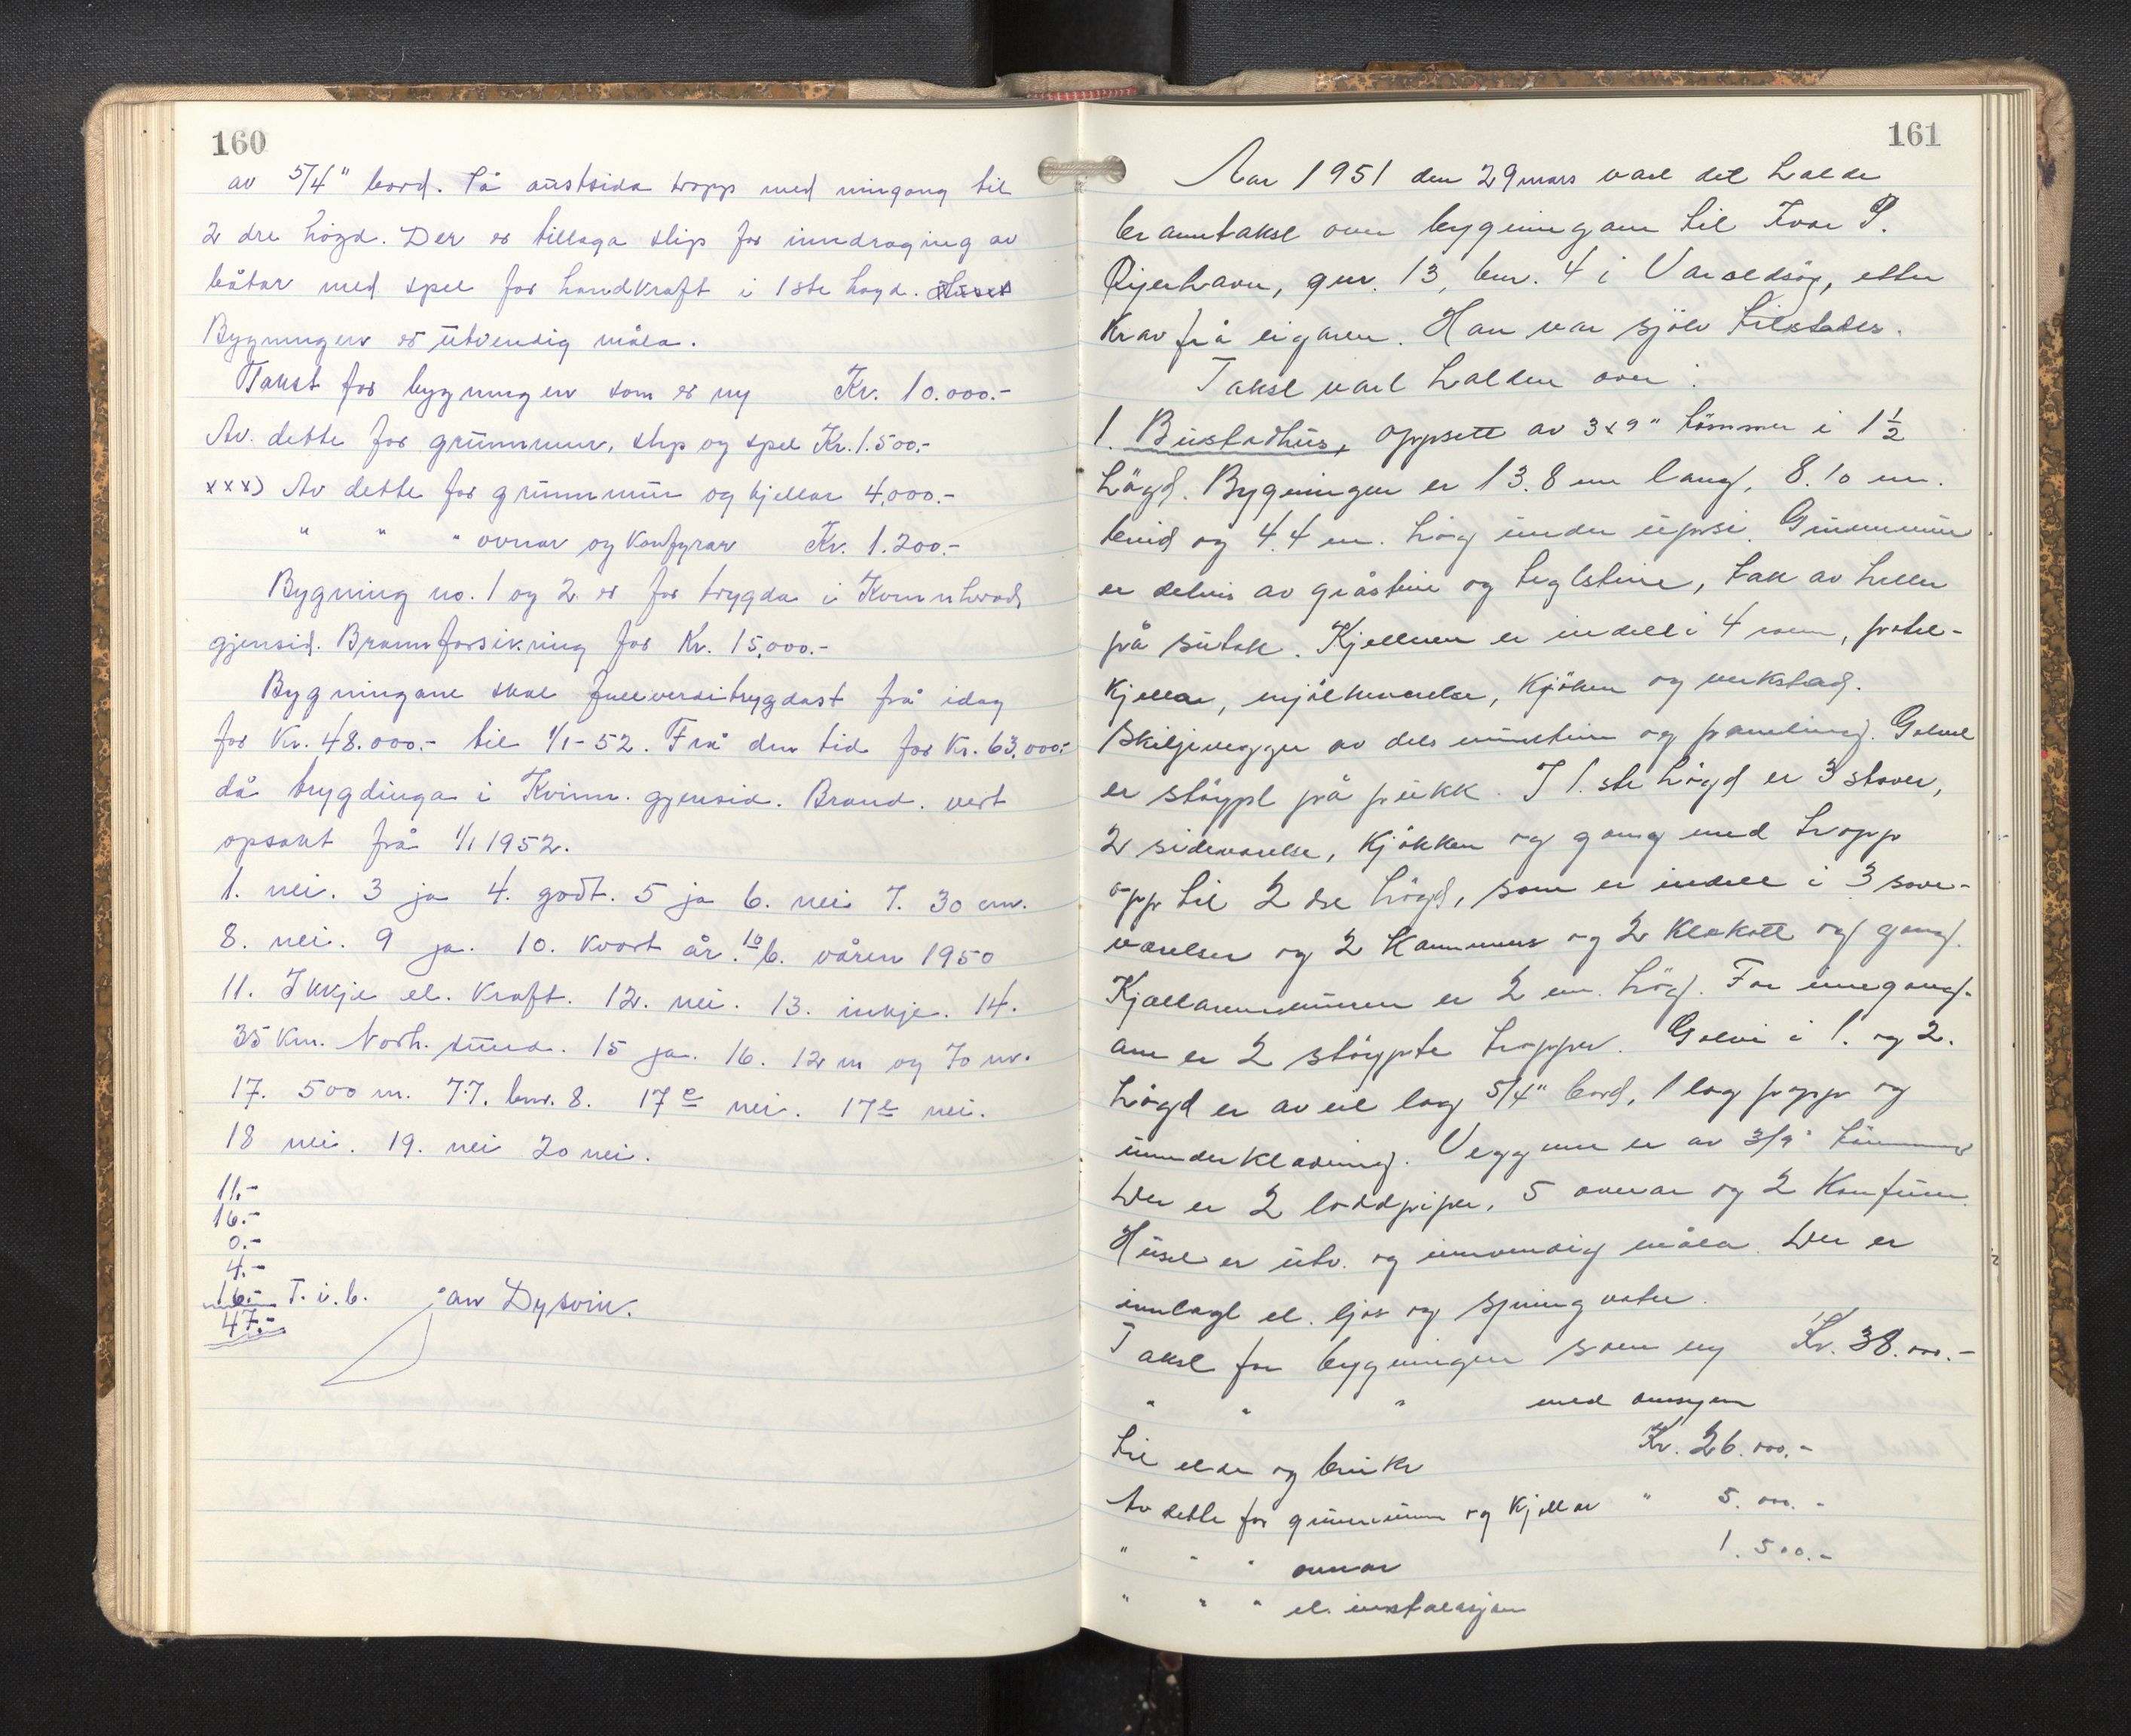 160
av 5/4" bord. På austsida tropp med inngang til
2 dre högd. Der er tillaga slip for inndraging av
båtar med spel for handkraft i 1ste högd. Huset
Bygningen er utvendig måla.
Takst for bygningen som er ny Kr. 10.000.-
Av dette for grunnmur, slip og spel Kr. 1.500.-
xxx) Av dette for grunnmur og kjellar 4.000.-
" " " ovnar og komfyrar Kr. 1.200.-
Bygning no. 1 og 2 er for trygda i Kvinnherad
gjensid. Brannforsikring for Kr. 15.000.-
Bygningane skal fullverditrygdast frå idag
for Kr. 48.000.- til 1/1-52. Frå den tid for Kr. 63.000.-
då trygdinga i Kvinn. gjensid. Brand. vert
opsakt frå 1/1 1952.
1. nei. 3 ja 4. godt. 5 ja 6. nei 7. 30 cm.
8. nei. 9 ja. 10. kvart år. 10 b. våren 1950
11. Ikkje el. kraft. 12. nei. 13. inkje. 14.
35 km. Norh. sund. 15 ja. 16. 12 m og 70 m.
17. 500 m. 77. bnr. 8. 17 c nei. 17 e nei.
18 nei. 19. nei 20 nei.
11.-
16.-
0.-
4.-
16.- T. i. b. Jan Dysvik.
47.-
161
Aar 1951 den 29 mars vart det halde
branntakst over bygningane til Ivar P.
Gjerhavn, gnr. 13, bnr. 4 i Varaldsöy, etter
krav frå eigaren. Han var sjölv tilstades.
Takst vart halden over:
1. Bustadhus, oppsett av 3x9" tömmer i 1 1/2
högd. Bygningen er 13.8 m lang, 8.10 m.
breid og 4.4 m. hög under upsi. Grunnmur
er delvis av gråstein og teglstein, tak av heller
på sutak. Kjelleren er indelt i 4 rom, potet-
kjellar, mjölkeværelse, kjöken og verkstad.
Skiljevegger av dels murstein og paneling. Golvet
er stöypt på pukk. I 1. ste högd er 3 stover,
2 sideværelse, kjökken og gang med tropp
opp til 2 dre högd, som er indelt i 3 sove-
værelser og 2 kammers og 2 klekott og gang.
Kjellarmuren er 2 m. hög. For inngang-
ane er 2 stöypte tropper. Golvi i 1. og 2.
högd er av eit lag 5/4" bord, 1 lag papp og
underkledning. Veggane er av 3/9" tömmer
Der er 2 loddpiper, 5 ovnar og 2 komfurer
Huset er utv. og innvendig måla. Der er
innlagt el. ljos og spring vatn.
Takst for bygningen som ny Kr. 38.000.-
" " " med omsyn
til elde og bruk Kr. 26.000.-
Av dette for grunnmur og kjellar " 5.000.-
" " " ovnar 1.500.-
" " " el. installasjon